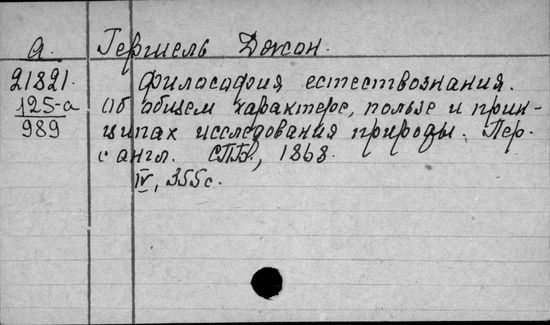 а. Гершель Джон.
21821. Философия естествознания.
125-а Об общем характере, пользе и прин-
989 ципах исследования природы. Пер.
с англ. СПБ, 1868.
IV, 355 с.